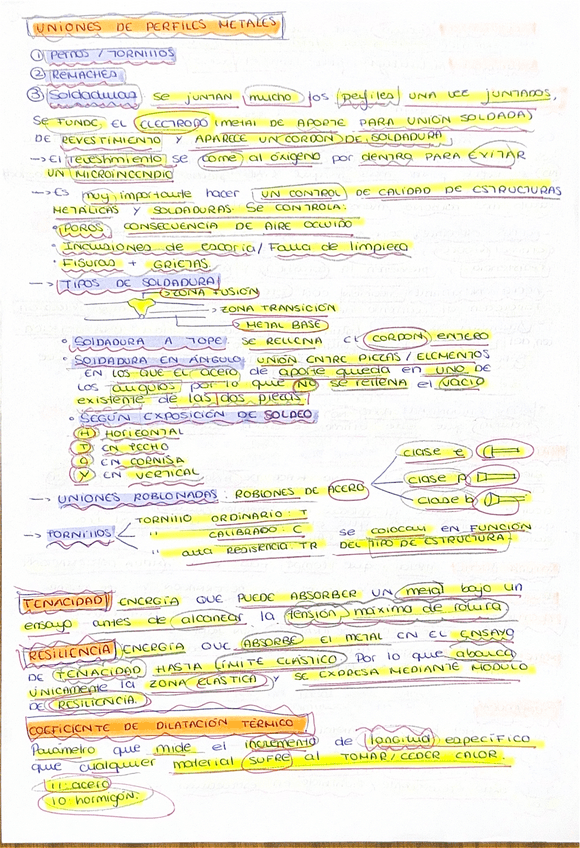 UNIONES DE PERFILES METALES
① PERNOS / TORNILLOS
② REMACHES
③ Soldaduras se juntan mucho los perfiles una vez juntados,
se funde el ELECTRODO (metal de aporte para unión soldada)
de revestimiento y aparece un cordón de soldadura
→ El revestimiento se come al óxigeno por dentro para evitar
un microincendio
→ Es muy importante hacer un control de calidad de estructuras
metálicas y soldaduras. Se controla:
• Poros consecuencia de aire ocluido
• Inclusiones de escoria / Falta de limpieza
• Fisuras + grietas
→ TIPOS DE SOLDADURA
→ ZONA FUSIÓN
→ ZONA TRANSICIÓN
METAL BASE
• SOLDADURA A TOPE: se rellena el cordón entero
• SOLDADURA EN ÁNGULO: unión entre piezas / elementos
en los que el acero de aporte queda en uno de
los angulos por lo que NO se rellena el vacio
existente de las dos piezas
• SEGÚN EXPOSICIÓN DE SOLDEO
(H) HORIZONTAL
(T) EN TECHO
EN CORNISA
(V) EN VERTICAL
→ UNIONES ROBLONADAS: ROBLONES DE ACERO
clase e
clase
clase b
→ TORNILLOS
TORNILLO ORDINARIO: T
" CALIBRADO: C
" alta resistencia: TR
se colocan en FUNCIÓN
DEL TIPO DE ESTRUCTURA.
TENACIDAD ENERGÍA QUE PUEDE ABSORBER UN metal bajo un
ensayo antes de alcanzar la tensión máxima de rotura
RESILIENCIA ENERGÍA QUE ABSORBE EL METAL EN EL ENSAYO
DE TENACIDAD HASTA LÍMITE ELÁSTICO Por lo que abarca
ÚNICAMENTE la ZONA ELÁSTICA y SE EXPRESA MEDIANTE MODULO
DE RESILIENCIA.
COEFICIENTE DE DILATACIÓN TÉRMICO
Parámetro que mide el incremento de longitud específico
que cualquier material SUFRE al TOMAR/CEDER CALOR.
11: acero
10: hormigón.